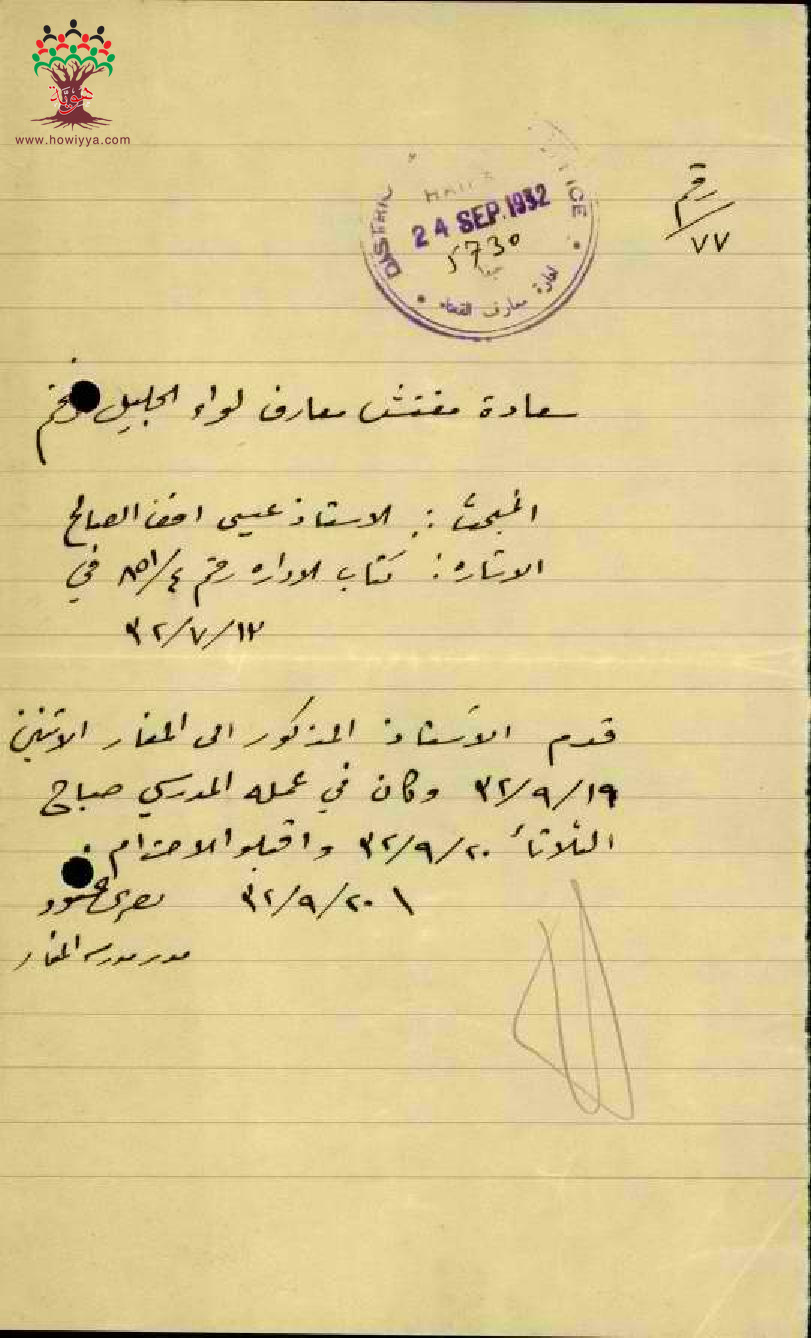 هوية
www.howiyya.com
رقم
٧٧
HAIFA
24 SEP. 1932
5730
حيفا
ادارة معارف القضاء
سعادة مفتش معارف لواء الجليل الافخم
المبحث : الاستاذ عيسى افندي الصالح
الاشاره : كتاب الاداره رقم ٨٥١/٤ في
٣٢/٧/١٣
قدم الاستاذ المذكور الى المغار الاثنين
٣٢/٩/١٩ وكان في عمله المدرسي صباح
الثلاثاء ٣٢/٩/٢٠ واقبلوا الاحترام .
٣٢/٩/٢٠
مدير مدرسة المغار